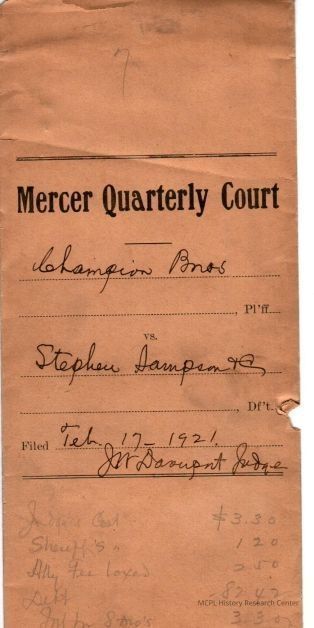 7
Mercer Quarterly Court
Champion Bros
, Pl'ff
vs.
Stephen Sampson &C
, Df't.
Filed Feb. 17- 1921
JW Davenport Judge
Judge's Cost $3.30
Sheriff's " 1 20
Atty Fee taxed 2 50
Debt 82 42
MCPL History Research Center
Int for 8 mo's 3 30